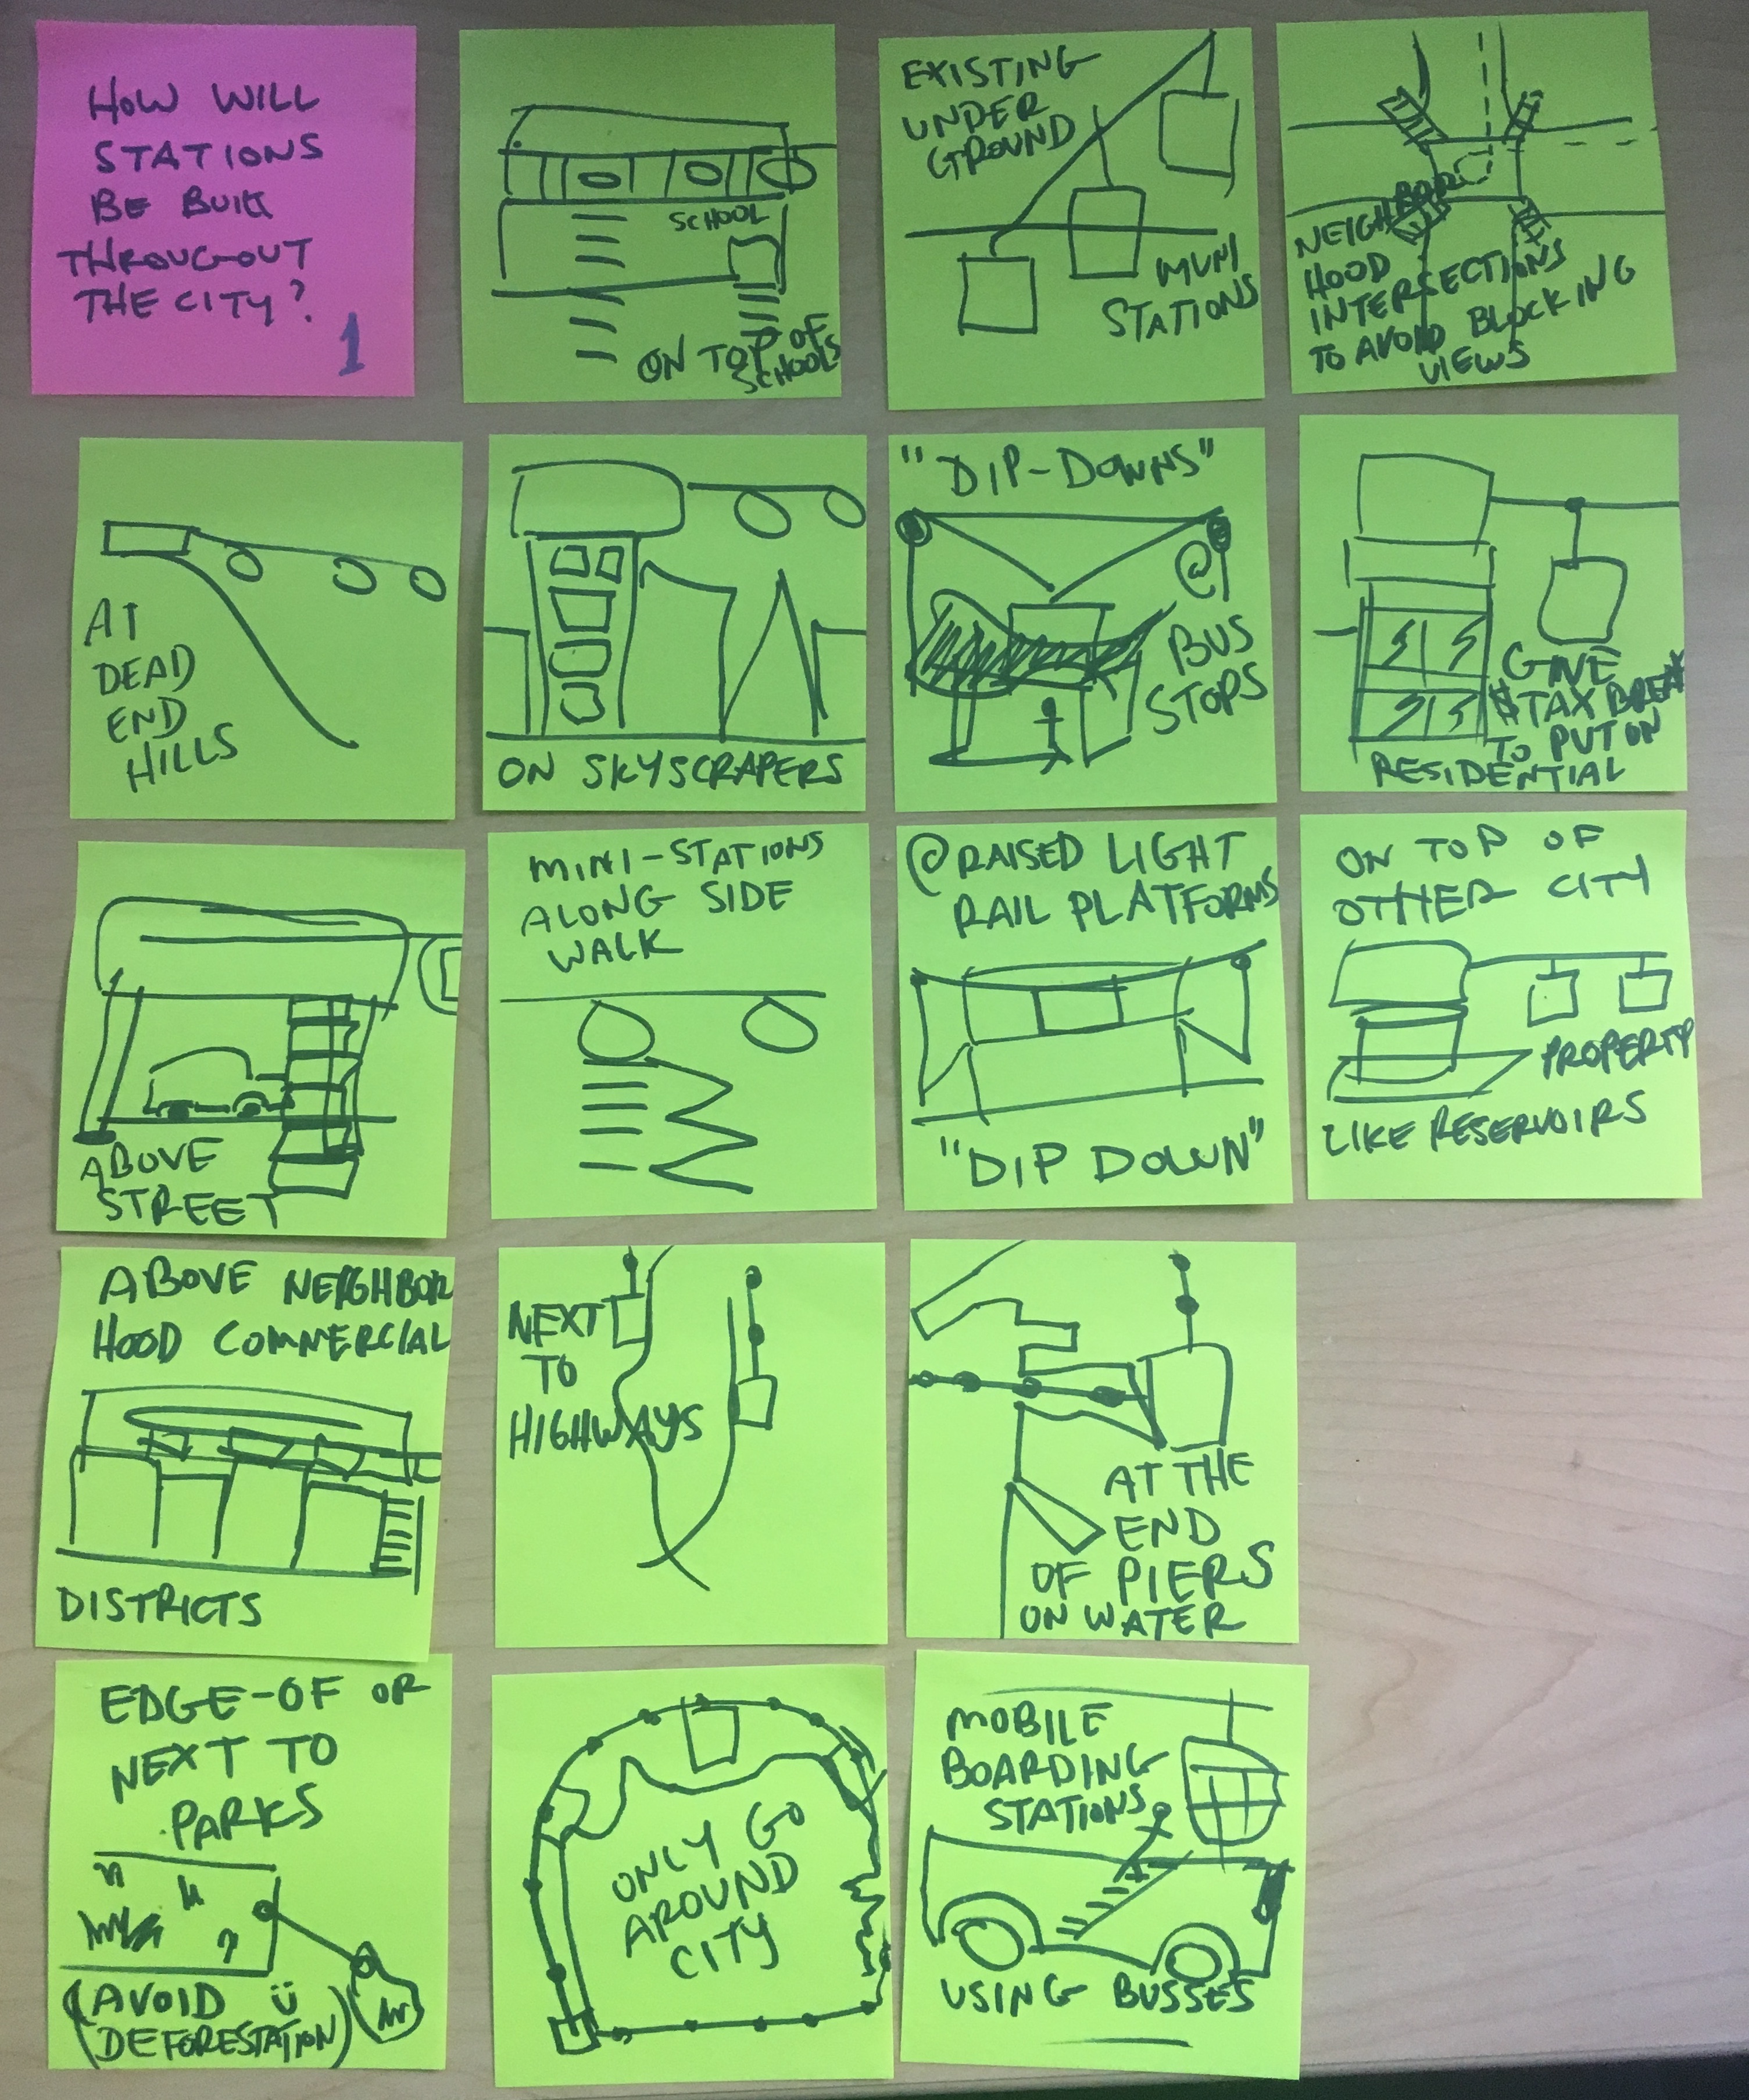 HOW WILL
STATIONS
BE BUILT
THROUGOUT
THE CITY?
1
SCHOOL
ON TOP OF
SCHOOLS
EXISTING
UNDER
GROUND
MUNI
STATIONS
NEIGHBOR
HOOD
INTERSECTIONS
TO AVOID BLOCKING
VIEWS
AT
DEAD
END
HILLS
ON SKYSCRAPERS
"DIP-DOWNS"
@
BUS
STOPS
GIVE
$TAX BREAK
TO PUT ON
RESIDENTIAL
ABOVE
STREET
MINI-STATIONS
ALONG SIDE
WALK
@RAISED LIGHT
RAIL PLATFORMS
"DIP DOWN"
ON TOP OF
OTHER CITY
PROPERTY
LIKE RESERVOIRS
ABOVE NEIGHBOR
HOOD COMMERCIAL
DISTRICTS
NEXT
TO
HIGHWAYS
AT THE
END
OF PIERS
ON WATER
EDGE-OF OR
NEXT TO
PARKS
(AVOID Ü
DEFORESTATION)
ONLY GO
AROUND
CITY
MOBILE
BOARDING
STATIONS
USING BUSSES